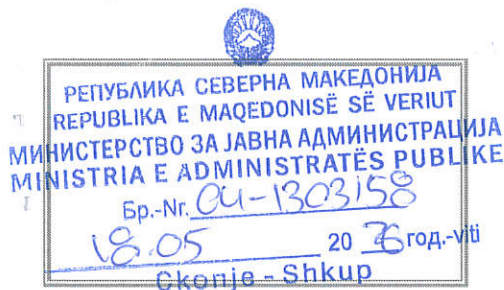 РЕПУБЛИКА СЕВЕРНА МАКЕДОНИЈА
REPUBLIKA E MAQEDONISË SË VERIUT
МИНИСТЕРСТВО ЗА ЈАВНА АДМИНИСТРАЦИЈА
MINISTRIA E ADMINISTRATËS PUBLIKE
Бр.-Nr. 04-1303/58
18.05 20 26 год.-viti
Скопје - Shkup